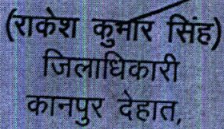 (राकेश कुमार सिंह)
जिलाधिकारी
कानपुर देहात,